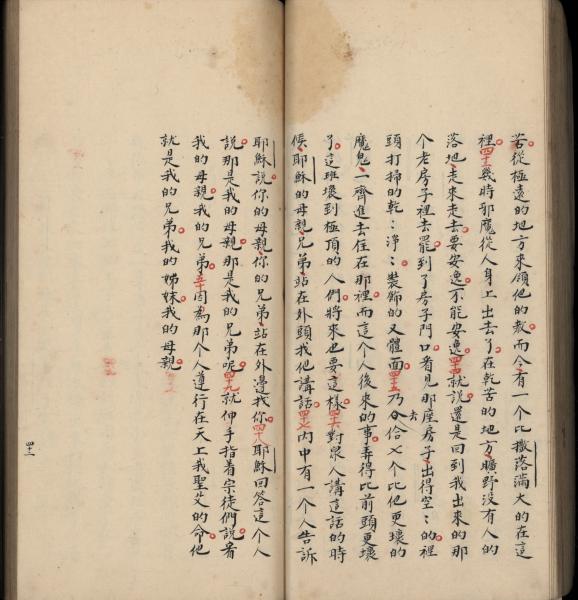 苦從極遠的地方來領他的教而今有一个比撒落滿大的在這
裡四十三幾時邪魔從人身上出去了在乾苦的地方曠野沒有人的
落地走來走去要安逸不能安逸四十四就說還是回到我出來的那
个老房子裡去罷到了房子門口看見那座房子出得空:的裡
頭打掃的乾:淨:裝飾的又體面四十五乃去合七个比他更壞的
魔鬼一齊進去住在那裡而這个人後來的事弄得比前頭更壞
了這班壞到極頂的人們將來也要這樣四十六對衆人講這話的時
候耶穌的母親兄弟站在外頭我他講話四十七內中有一个人告訴
耶穌說你的母親你的兄弟站在外邊我你四十八耶穌回答這个人
說那是我的母親那是我的兄弟呢四十九就伸手指着宗徒們說看
我的母親我的兄弟五十因為那个人遵行在天上我聖父的命他
就是我的兄弟我的姊妹我的母親
四十二